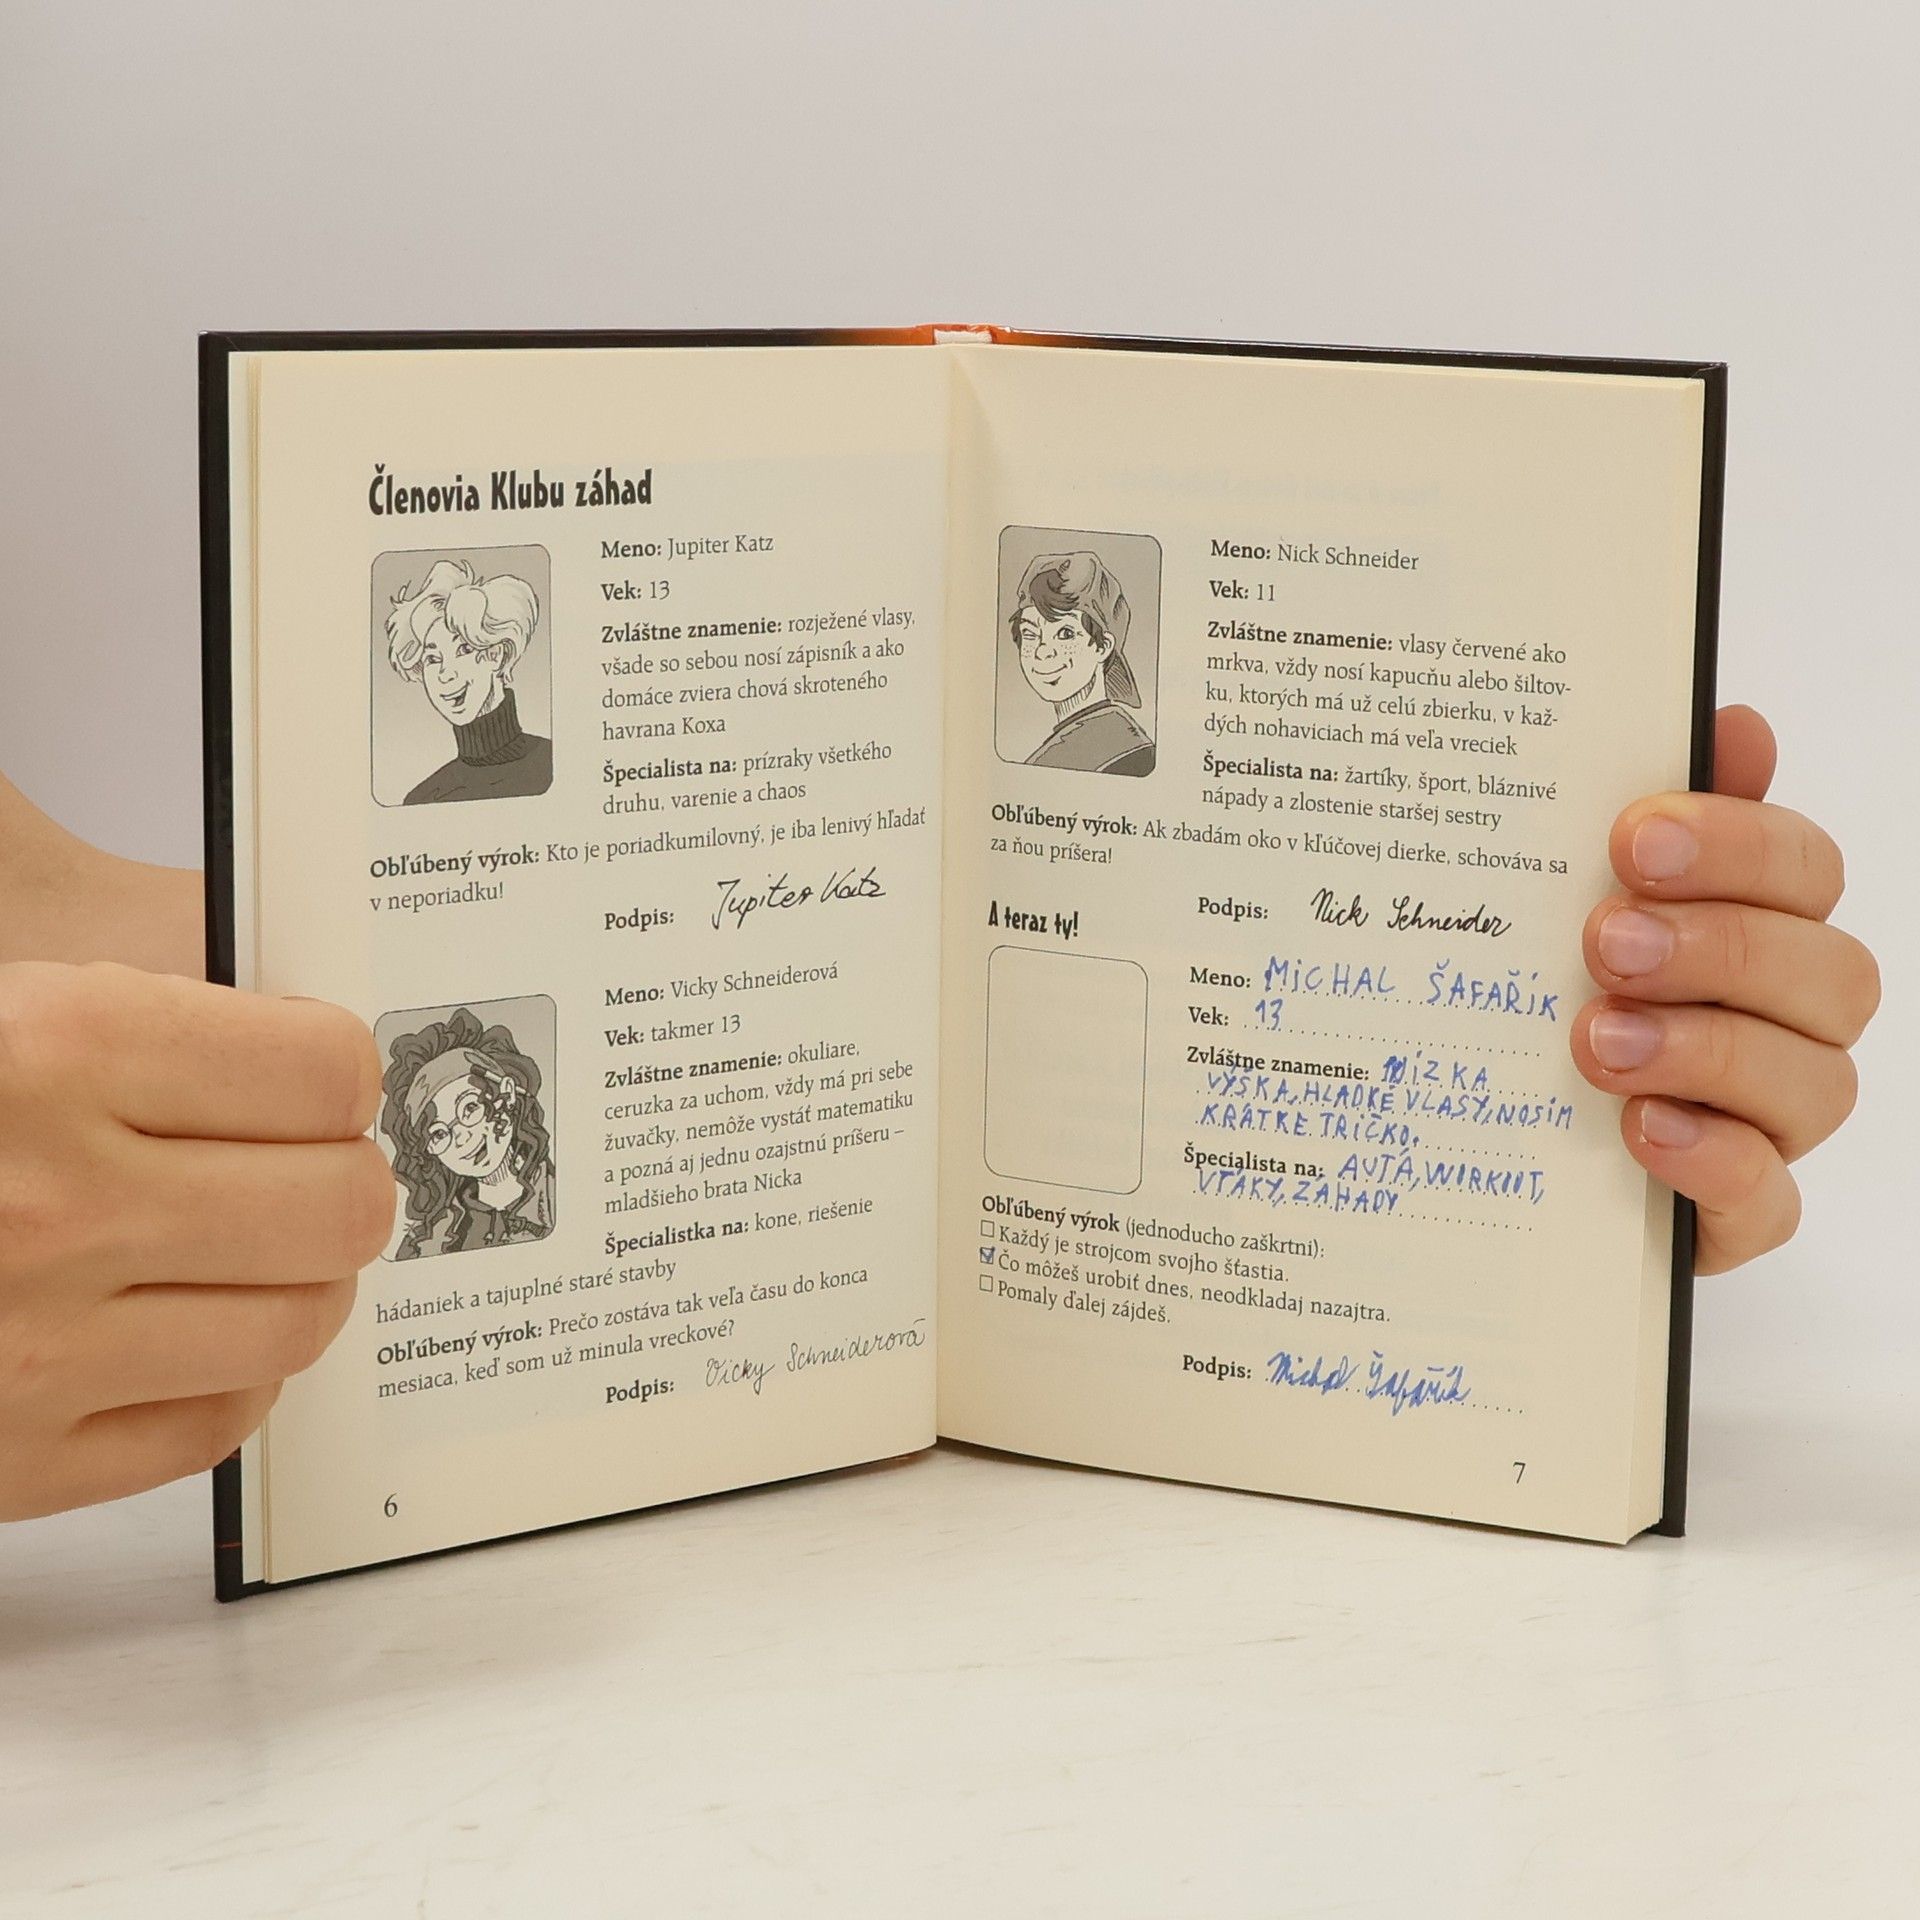 Členovia Klubu záhad
Meno: Jupiter Katz
Vek: 13
Zvláštne znamenie: rozježené vlasy,
všade so sebou nosí zápisník a ako
domáce zviera chová skroteného
havrana Koxa
Špecialista na: prízraky všetkého
druhu, varenie a chaos
Obľúbený výrok: Kto je poriadkumilovný, je iba lenivý hľadať
v neporiadku!
Podpis: Jupiter Katz
Meno: Vicky Schneiderová
Vek: takmer 13
Zvláštne znamenie: okuliare,
ceruzka za uchom, vždy má pri sebe
žuvačky, nemôže vystáť matematiku
a pozná aj jednu ozajstnú príšeru –
mladšieho brata Nicka
Špecialistka na: kone, riešenie
hádaniek a tajuplné staré stavby
Obľúbený výrok: Prečo zostáva tak veľa času do konca
mesiaca, keď som už minula vreckové?
Podpis: Vicky Schneiderová
6
Meno: Nick Schneider
Vek: 11
Zvláštne znamenie: vlasy červené ako
mrkva, vždy nosí kapucňu alebo šiltov-
ku, ktorých má už celú zbierku, v kaž-
dých nohaviciach má veľa vreciek
Špecialista na: žartíky, šport, bláznivé
nápady a zlostenie staršej sestry
Obľúbený výrok: Ak zbadám oko v kľúčovej dierke, schováva sa
za ňou príšera!
Podpis: Nick Schneider
A teraz ty!
Meno: MICHAL ŠAFAŘÍK
Vek: 13
Zvláštne znamenie: NÍZKA
VÝŠKA, HLADKÉ VLASY, NOSÍM
KRÁTKE TRIČKO.
Špecialista na: AUTÁ, WORKOUT,
VTÁKY, ZÁHADY
Obľúbený výrok (jednoducho zaškrtni):
☐ Každý je strojcom svojho šťastia.
☑ Čo môžeš urobiť dnes, neodkladaj nazajtra.
☐ Pomaly ďalej zájdeš.
Podpis: Michal Šafařík
7